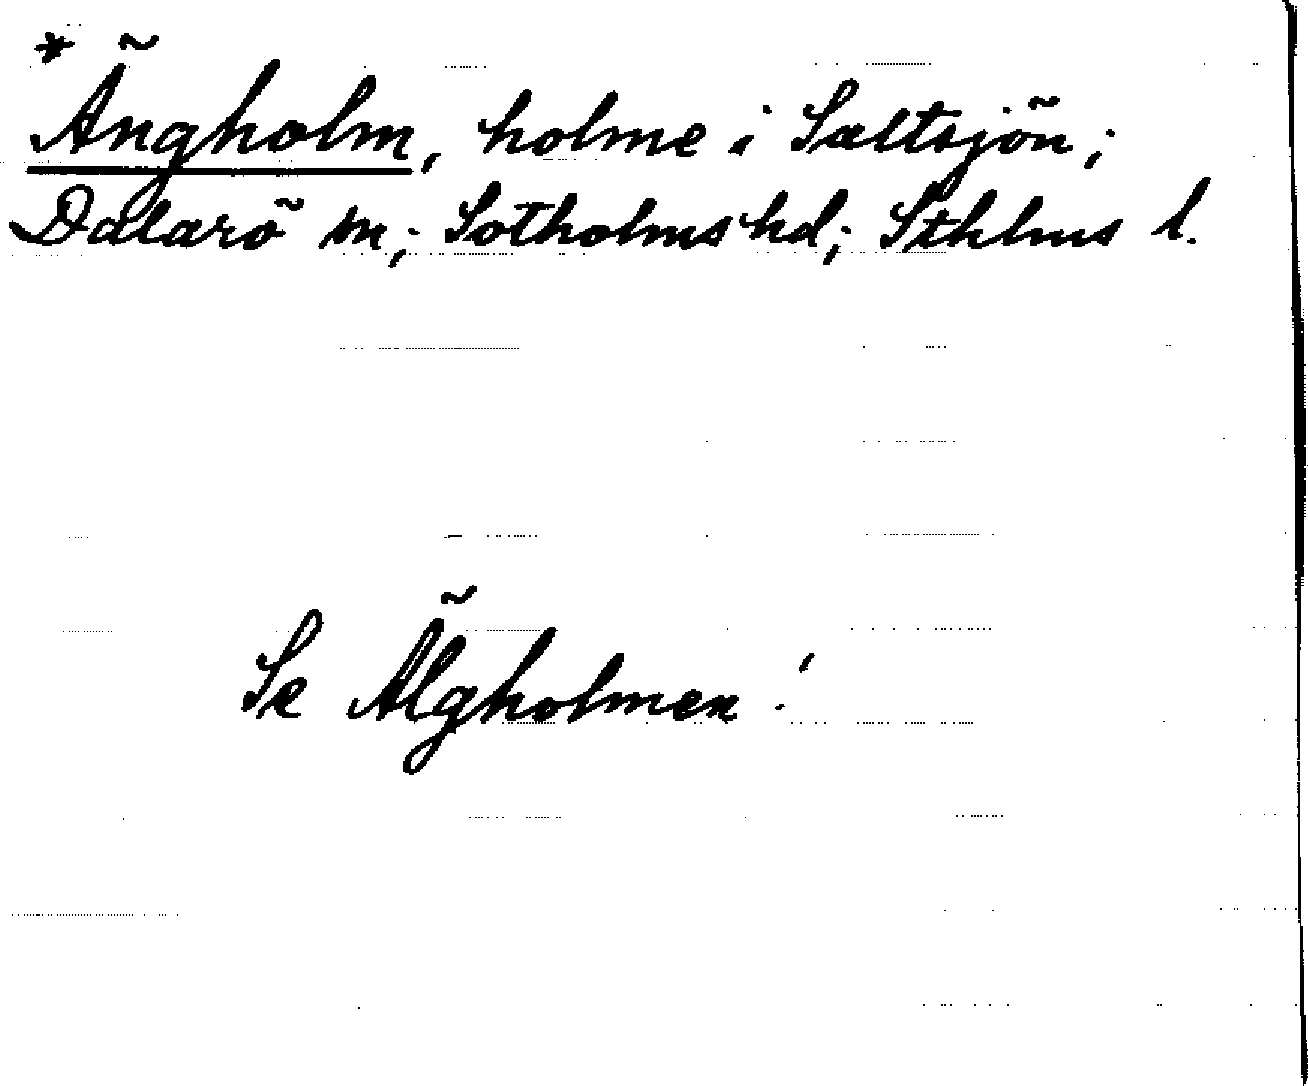 *Ängholm, holme i Saltsjön;
Dalarö sn; Sotholms hd; Sthlms l.
Se Älgholmen!